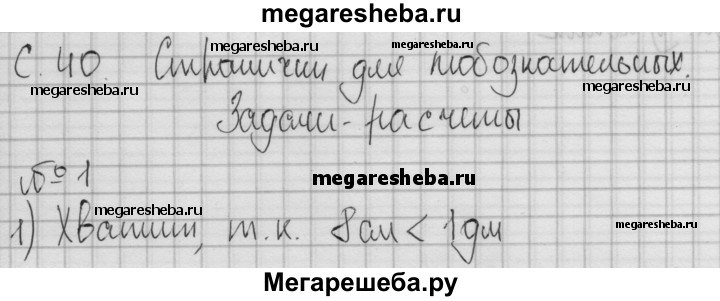 megaresheba.ru
megaresheba.ru megaresheba.ru
С. 40. Странички для любознательных.
megaresheba.ru megaresheba.ru
Задачи - расчеты
№ 1 megaresheba.ru
megaresheba.ru
1) Хватит, т.к. 8см < 1дм
megaresheba.ru
Мегарешеба.ру